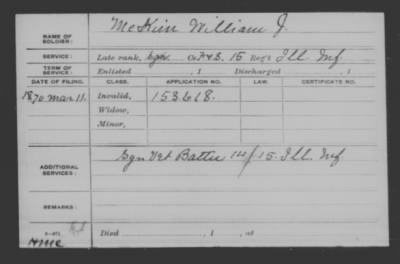 NAME OF SOLDIER: McKim William J.
SERVICE: Late rank, Sgn. of F&S. 15 Reg't Ill. Inf.
TERM OF SERVICE: Enlisted , 1 Discharged , 1
DATE OF FILING. CLASS. APPLICATION NO. LAW. CERTIFICATE NO.
1870 Mar. 11. Invalid, 153618.
Widow,
Minor,
ADDITIONAL SERVICES: Sgn Vet Batt'n 14/15. Ill. Inf.
REMARKS:
Died , 1 , at